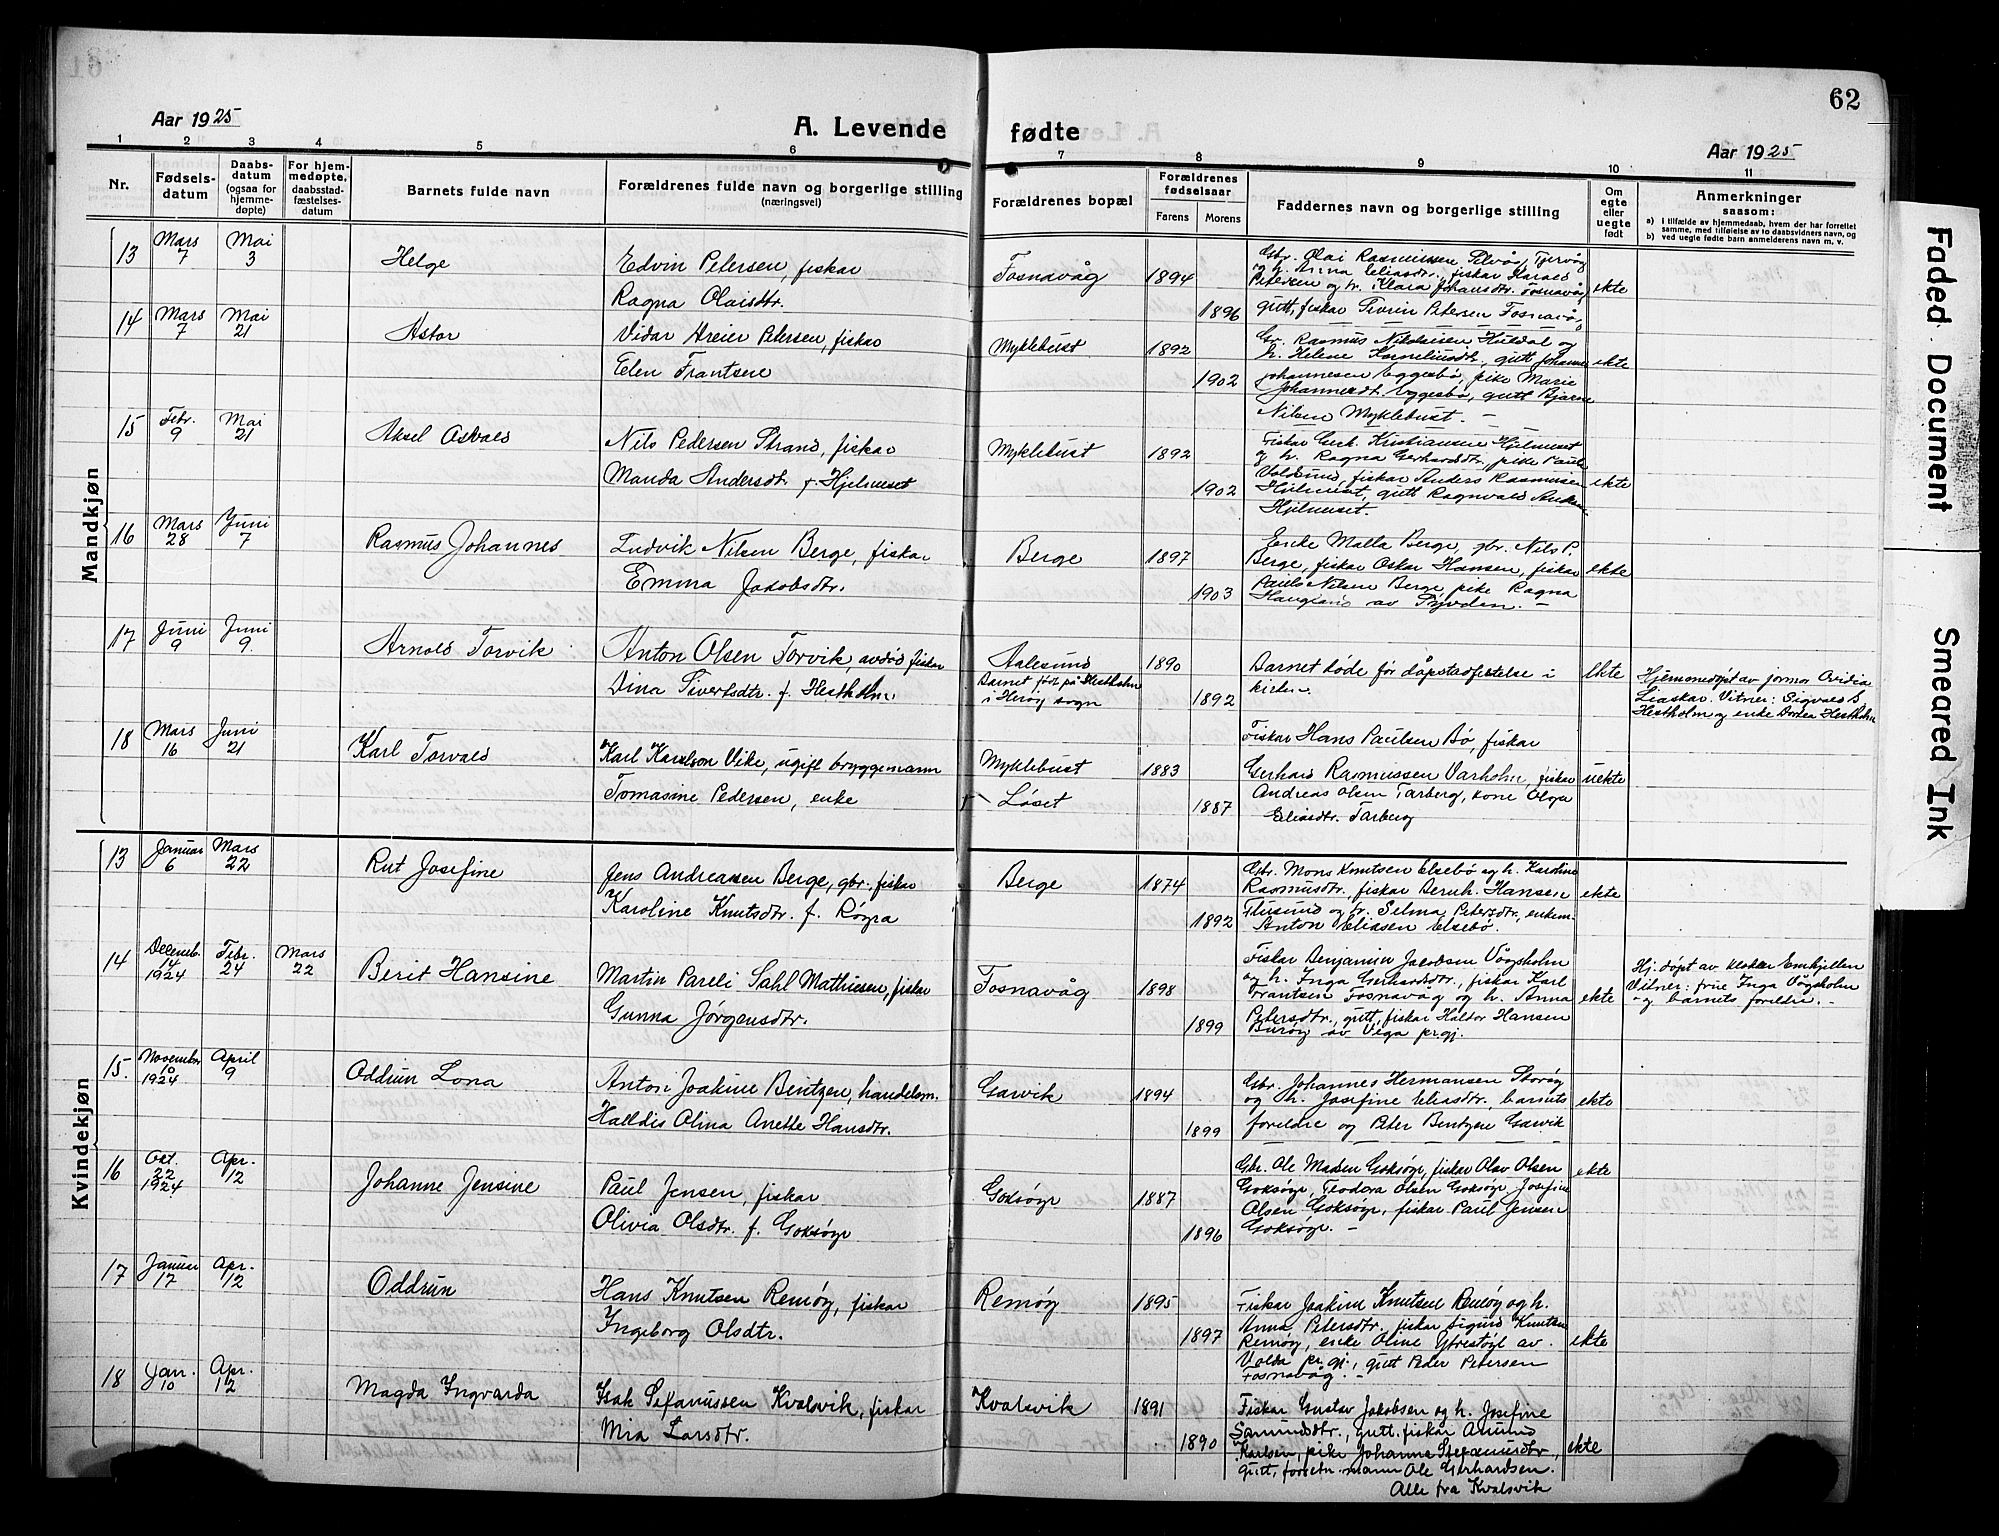 62
Aar 1925
A. Levende fødte
Aar 1925
1 2 3 4 5 6 7 8 9 10 11
Nr.
Fødsels-
datum
Daabs-
datum
(ogsaa for
hjemme-
døpte)
For hjem-
medøpte,
daabsstad-
fæstelses-
datum
Barnets fulde navn
Forældrenes fulde navn og borgerlige stilling
(næringsvei)
Forældrenes bopæl
Forældrenes
fødselsaar
Farens Morens
Faddernes navn og borgerlige stilling
Om
egte
eller
uegte
født
Anmerkninger
saasom:
a) I tilfælde av hjemmedaab, hvem der har forrettet
samme, med tilføielse av to daabsvidners navn, og
b) ved uegte fødte barn anmelderens navn m. v.
Mandkjøn
13
Mars
7
Mai
3
Helge
Edvin Petersen, fiskar
Ragna Olaisdtr.
Fosnavåg
1894
1896
Gbr. Olai Rasmussen
og h. Anna Eliasdtr., fiskar Harald
Petersen og h. Klara Johansdtr. Fosnavåg
gutt, fiskar Severin Petersen Fosnavåg
ekte
14
Mars
7
Mai
21
Astor
Vidar Dreier Petersen, fiskar
Elen Frantsen
Myklebust
1892
1902
Gr. Rasmus Nikolaisen Huldal og
h. Helene Korneliusdtr., gutt Johannes
Johannesen Eggesbø, pike Marie
Johannesdt. Eggesbø, gutt Bjarne
Nilsen Myklebust. —
ekte
15
Febr.
9
Mai
21
Aksel Osvald
Nils Pedersen Strand, fiskar
Manda Andersdtr. f. Hjelmeset
Myklebust
1892
1902
Fiskar Gerh. Kristiansen Hjelmeset
og h. Ragna Gerhardsdtr, pike Paula
Voldsund, fiskar Anders Rasmussen
Hjelmeset, gutt Ragnvald Anders.
Hjelmeset.
ekte
16
Mars
28
Juni
7
Rasmus Johannes
Ludvik Nilsen Berge, fiskar
Emma Jakobsdtr.
Berge
1897
1903
Enke Malla Berge, gbr. Nils P.
Berge, fiskar Oskar Hansen, fiskar
Pauls Nilsen Berge pike Ragna
Haugland av Syvden. —
ekte
17
Juni
9
Juni
9
Arnold Torvik
Anton Olsen Torvik avdød fiskar
Dina Sivertsdtr. f. Hestholm
Aalesund
Barnet født på Hestholm
i Herøy sogn
1890
1892
Barnet døde før dåpstadfestelse i
kirken.
ekte
Hjemmedøpt av jormor Ovidia
Leaskar. Vitner: Sigvald S
Hestholm og enke Dortea Hestholm
18
Mars
16
Juni
21
Karl Torvald
Karl Karelson Vike, ugift bryggemann
Tomasine Pedersen, enke
Myklebust
Løset
1883
1887
Fiskar Hans Paulsen Bø, fiskar
Gerhard Rasmussen Varholm, fiskar
Andreas Olsen Tarberg, kone Olga
Eliasdtr. Tarberg
uekte
Kvindekjøn
13
Januar
6
Mars
22
Rut Josefine
Jens Andreassen Berge, gbr. fiskar
Karoline Knutsdtr. f. Røgra
Berge
1874
1892
Gbr. Mons Knutsen Elsebø og h. Karoline
Rasmusdtr. fiskar Bernh. Hansen
Flusund og h. Selma Petersdtr., enkem.
Anton Eliasen Elsebø.
ekte
14
Decemb.
14
1924
Febr.
24
Mars
22
Berit Hansine
Martin Pareli Sahl Mathiesen, fiskar
Gunna Jørgensdtr.
Fosnavåg
1898
1899
Fiskar Benjamin Jacobsen Vågsholm
og h. Inga Gerhardsdtr., fiskar Karl
Frantsen Fosnavåg og h. Anna
Petersdtr., gutt, fiskar Haldor Hansen
Burøy av Vega prgj.
ekte
Hj. døpt av klokker Emhjellen
Vitner: frue Inga Vågsholm
og barnets foreldre. —
15.
November
10
1924
April
9
Oddrun Lona
Anton Joakim Bentzen, handelsm.
Halldis Olina Anette Hansdtr.
Garvik
1894
1899
Gbr. Johannes Hermansen Storøy
og h. Josefine Eliasdtr., barnets
foreldre og Peter Bentzen Garvik
ekte
16
Okt.
22
1924
Apr.
12
Johanne Jensine
Paul Jensen, fiskar
Olivia Olsdtr. f. Goksøyr
Goksøyr
1887
1896
Gbr. Ole Madsen Goksøyr, fiskar Olav Olsen
Goksøyr, Teodora Olsen Goksøyr, Josefine
Olsen Goksøyr, fiskar Paul Jensen
Goksøyr. —
ekte
17
Januar
17
Apr.
12
Oddrun
Hans Knutsen Remøy, fiskar
Ingeborg Olsdtr.
Remøy
1895
1897
Fiskar Joakim Knutsen Remøy og h.
Anna Petersdtr., fiskar Sigurd Knutsen
Remøy, enke Oline Ytrestøyl av
Volda pr.gj., gutt Peder Petersen
Fosnavåg. —
ekte
18
Jan.
10
Apr.
12
Magda Ingvarda
Isak Stefanussen Kvalsvik, fiskar
Mia Larsdtr.
Kvalsvik
1891
1890
Fiskar Gustav Jakobsen og h. Josefine
Samundsdtr., gutt. fiskar Amund
Karlsen, pike Johanne Stefanusdtr,
gutt, forretn.mann Ole Gerhardsen.
Alle fra Kvalsvik
ekte
Faded Document
Smeared Ink